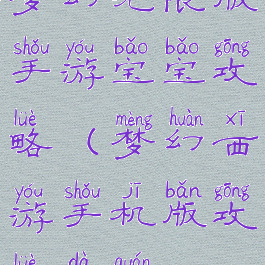 shǒu yóu bǎo bǎo gōng
手游宝宝攻
lüè mèng huàn xī
略(梦幻西
yóu shǒu jī bǎn gōng
游手机版攻
lüè dà quán